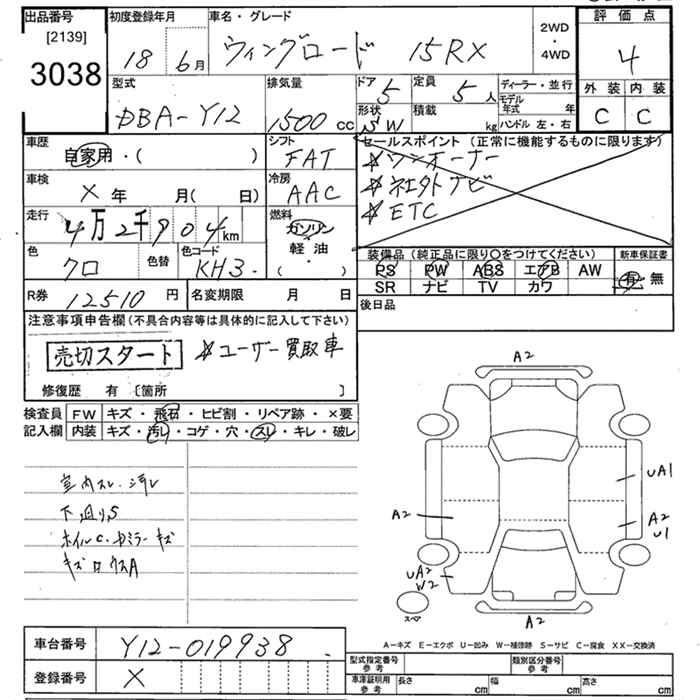 出品番号
[2139]
3038
初度登録年月
18 6月
車名・グレード
ウィングロード 15RX
2WD
・
4WD
評価点
4
外装 内装
C C
型式
DBA-Y12
排気量
1500 cc
ドア
5
定員
5人
形状
SW
積載
kg
ディーラー・並行
モデル年式 年
ハンドル 左・右
車歴
自家用・( )
シフト
FAT
セールスポイント(正常に機能するものに限ります)
☆ワンオーナー
☆ETC
車検
× 年 月( 日)
冷房
AAC
走行
4万2千904km
燃料
ガソリン
軽・油
( )
色
クロ
色替
色コード
KH3
装備品(純正品に限り○をつけてください)
新車保証書
PS PW ABS エアB AW
SR ナビ TV カワ
有・無
R券 12510円
名変期限 月 日
後日品
注意事項申告欄(不具合内容等は具体的に記入して下さい)
売切スタート
☆ユーザー買取車
修復歴 有〔箇所 〕
検査員
記入欄
FW キズ・飛石・ヒビ割・リペア跡・×要
内装 キズ・汚レ・コゲ・穴・スレ・キレ・破レ
室内スレ・汚レ
下廻りS
ホイルC・ドミラーキズ
A2
UA1
A2
A2
U1
UA2
W2
A2
スペア
A-キズ E-エクボ U-凹み W-補修跡 S-サビ C-腐食 XX-交換済
車台番号
Y12-019938
登録番号
×
型式指定番号
参考
類別区分番号
参考
車庫証明用
参考
長さ cm
幅 cm
高さ cm